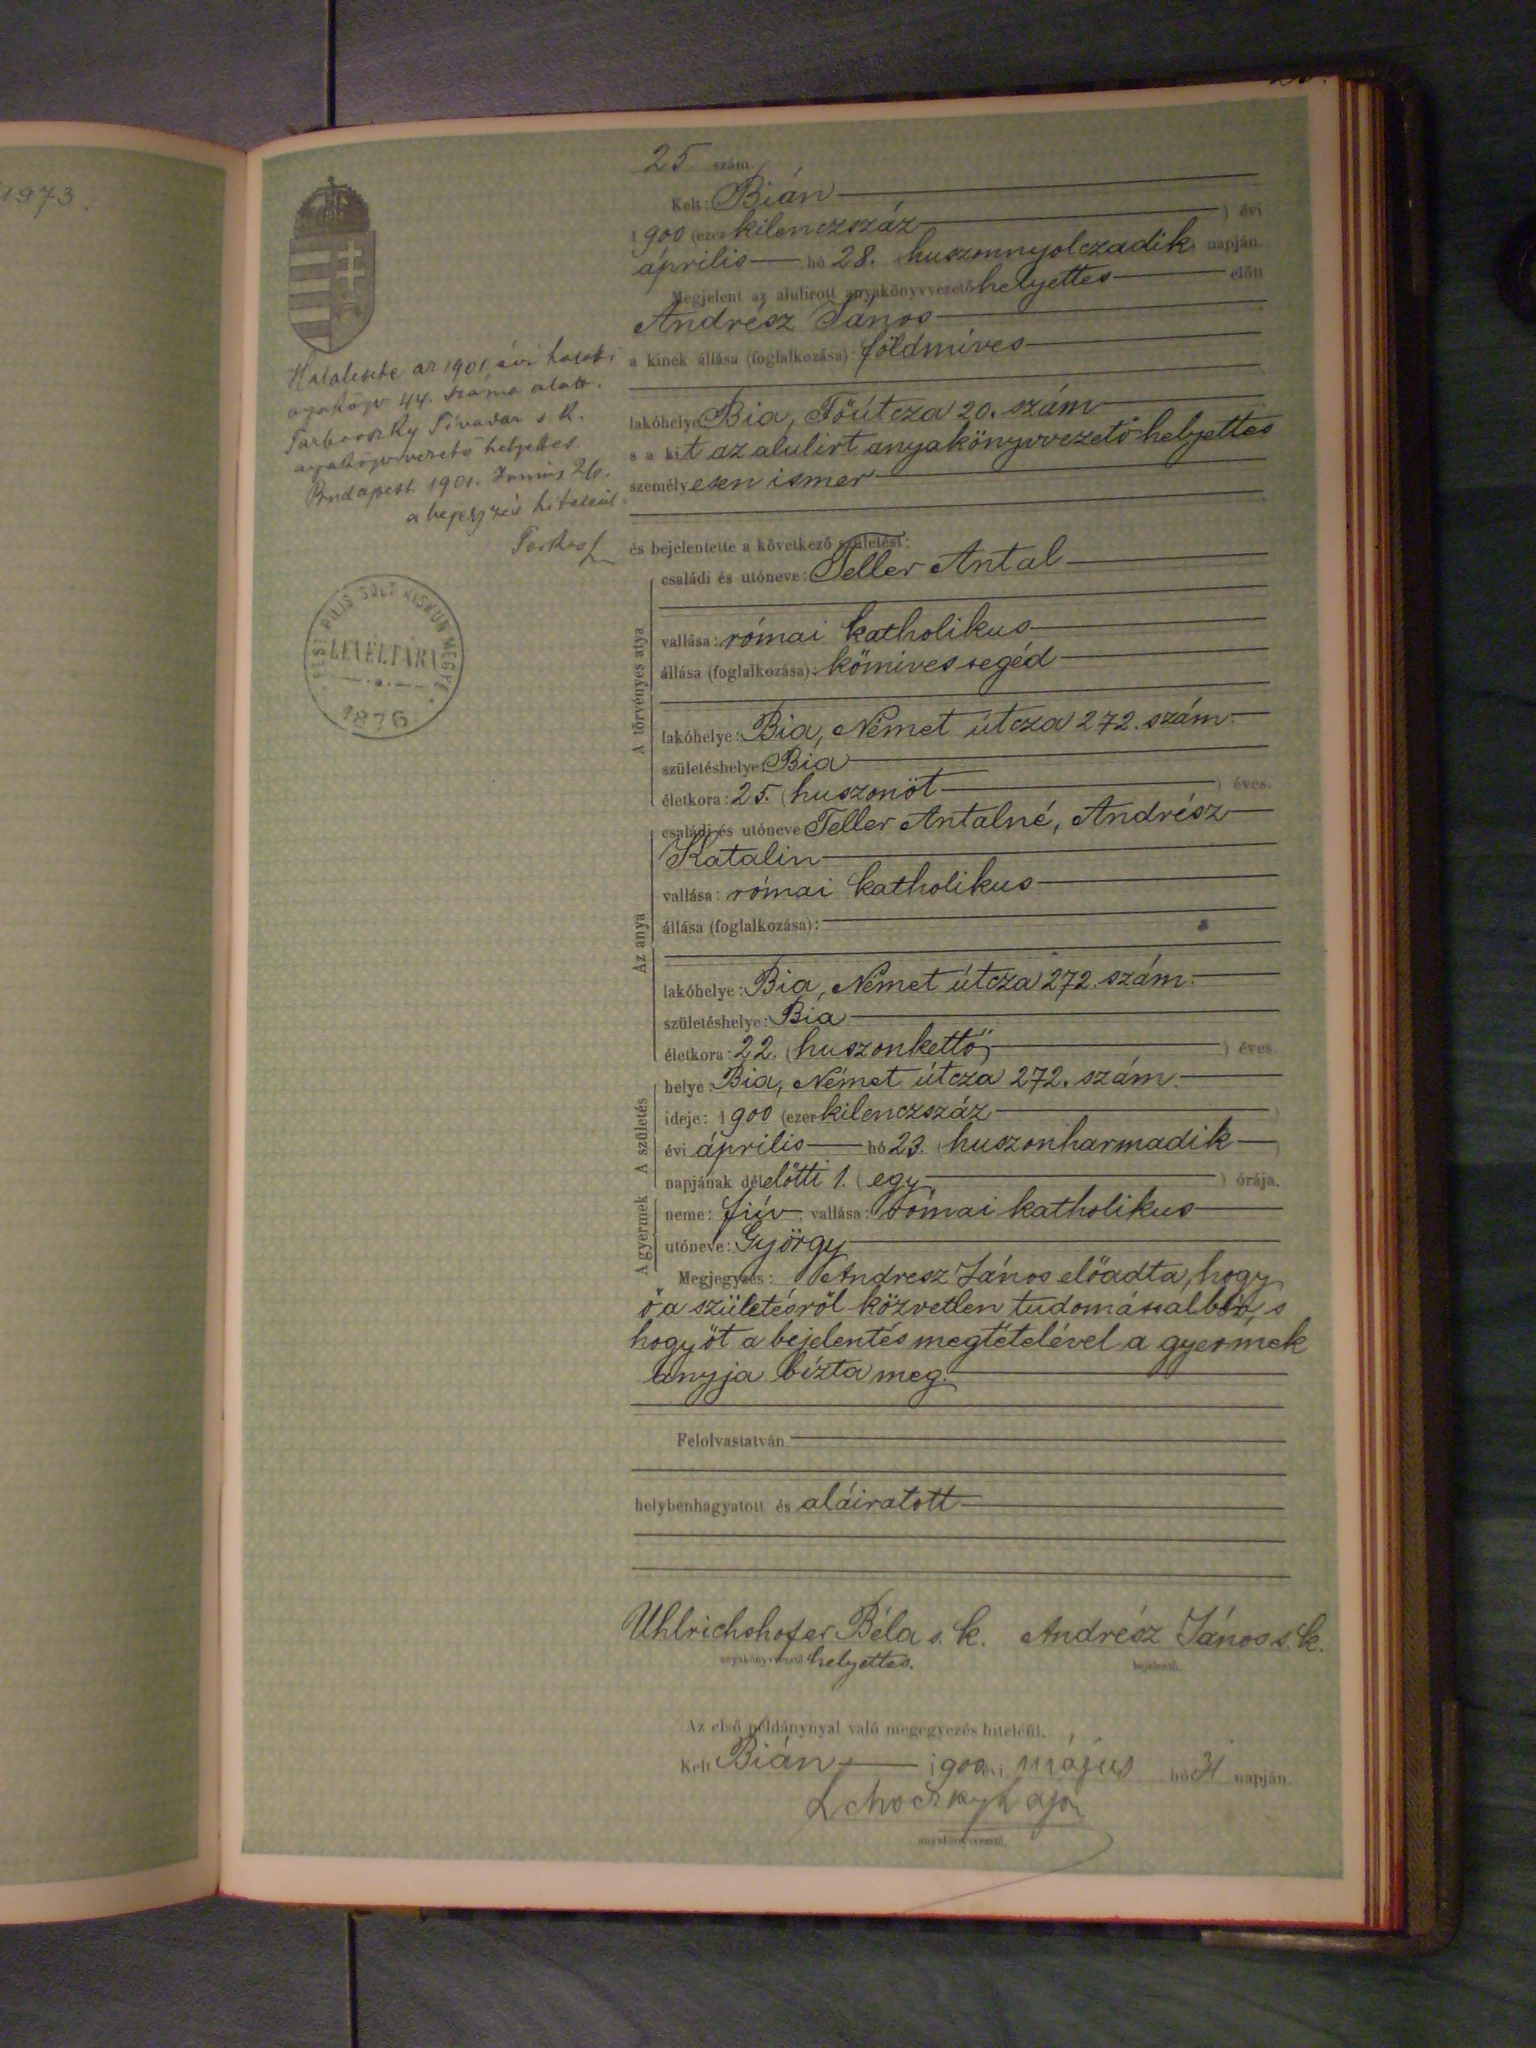 1973.
25 szám.
Kelt: Bián
1900 (ezer kilenczszáz ) évi
április hó 28. (huszonnyolczadik) napján.
Megjelent az alulirott anyakönyvvezető helyettes előtt
Andrész János
a kinek állása (foglalkozása): földmíves
lakóhelye Bia, Főútcza 20. szám
s a kit az alulirt anyakönyvvezető helyettes
személyesen ismer
és bejelentette a következő születést:
A törvényes atya
családi és utóneve: Teller Antal
vallása: római katholikus
állása (foglalkozása): kőmives segéd
lakóhelye: Bia, Német útcza 272. szám.
születéshelye: Bia
életkora: 25. (huszonöt ) éves.
Az anya
családi és utóneve Teller Antalné, Andrész
Katalin
vallása: római katholikus
állása (foglalkozása):
lakóhelye: Bia, Német útcza 272. szám.
születéshelye: Bia
életkora: 22. (huszonkettő ) éves.
A születés
helye: Bia, Német útcza 272. szám.
ideje: 1900 (ezer kilenczszáz )
évi április hó 23. (huszonharmadik )
napjának délelőtti 1. (egy ) órája.
A gyermek
neme: fiú vallása: római katholikus
utóneve: György
Megjegyzés: Andresz János előadta, hogy
ő a születésről közvetlen tudomással bír, s
hogy őt a bejelentés megtételével a gyermek
anyja bízta meg.
Felolvastatván
helybenhagyatott és aláiratott
Uhlrichshofer Béla s. k. Andrész János s. k.
anyakönyvvezető helyettes. bejelentő.
Az első példánynyal való megegyezés hiteléül.
Kelt Bián 1900 évi május hó 31 napján.
anyakönyvvezető.
Halálesete az 1901 évi halotti
anyakönyv 44. száma alatt.
Tivadar s. k.
anyakönyvvezető helyettes
Budapest 1901. Junius 26.
a bejegyzés hiteléül
PEST PILIS SOLT KISKUN MEGYE
LEVÉLTÁRA
1876